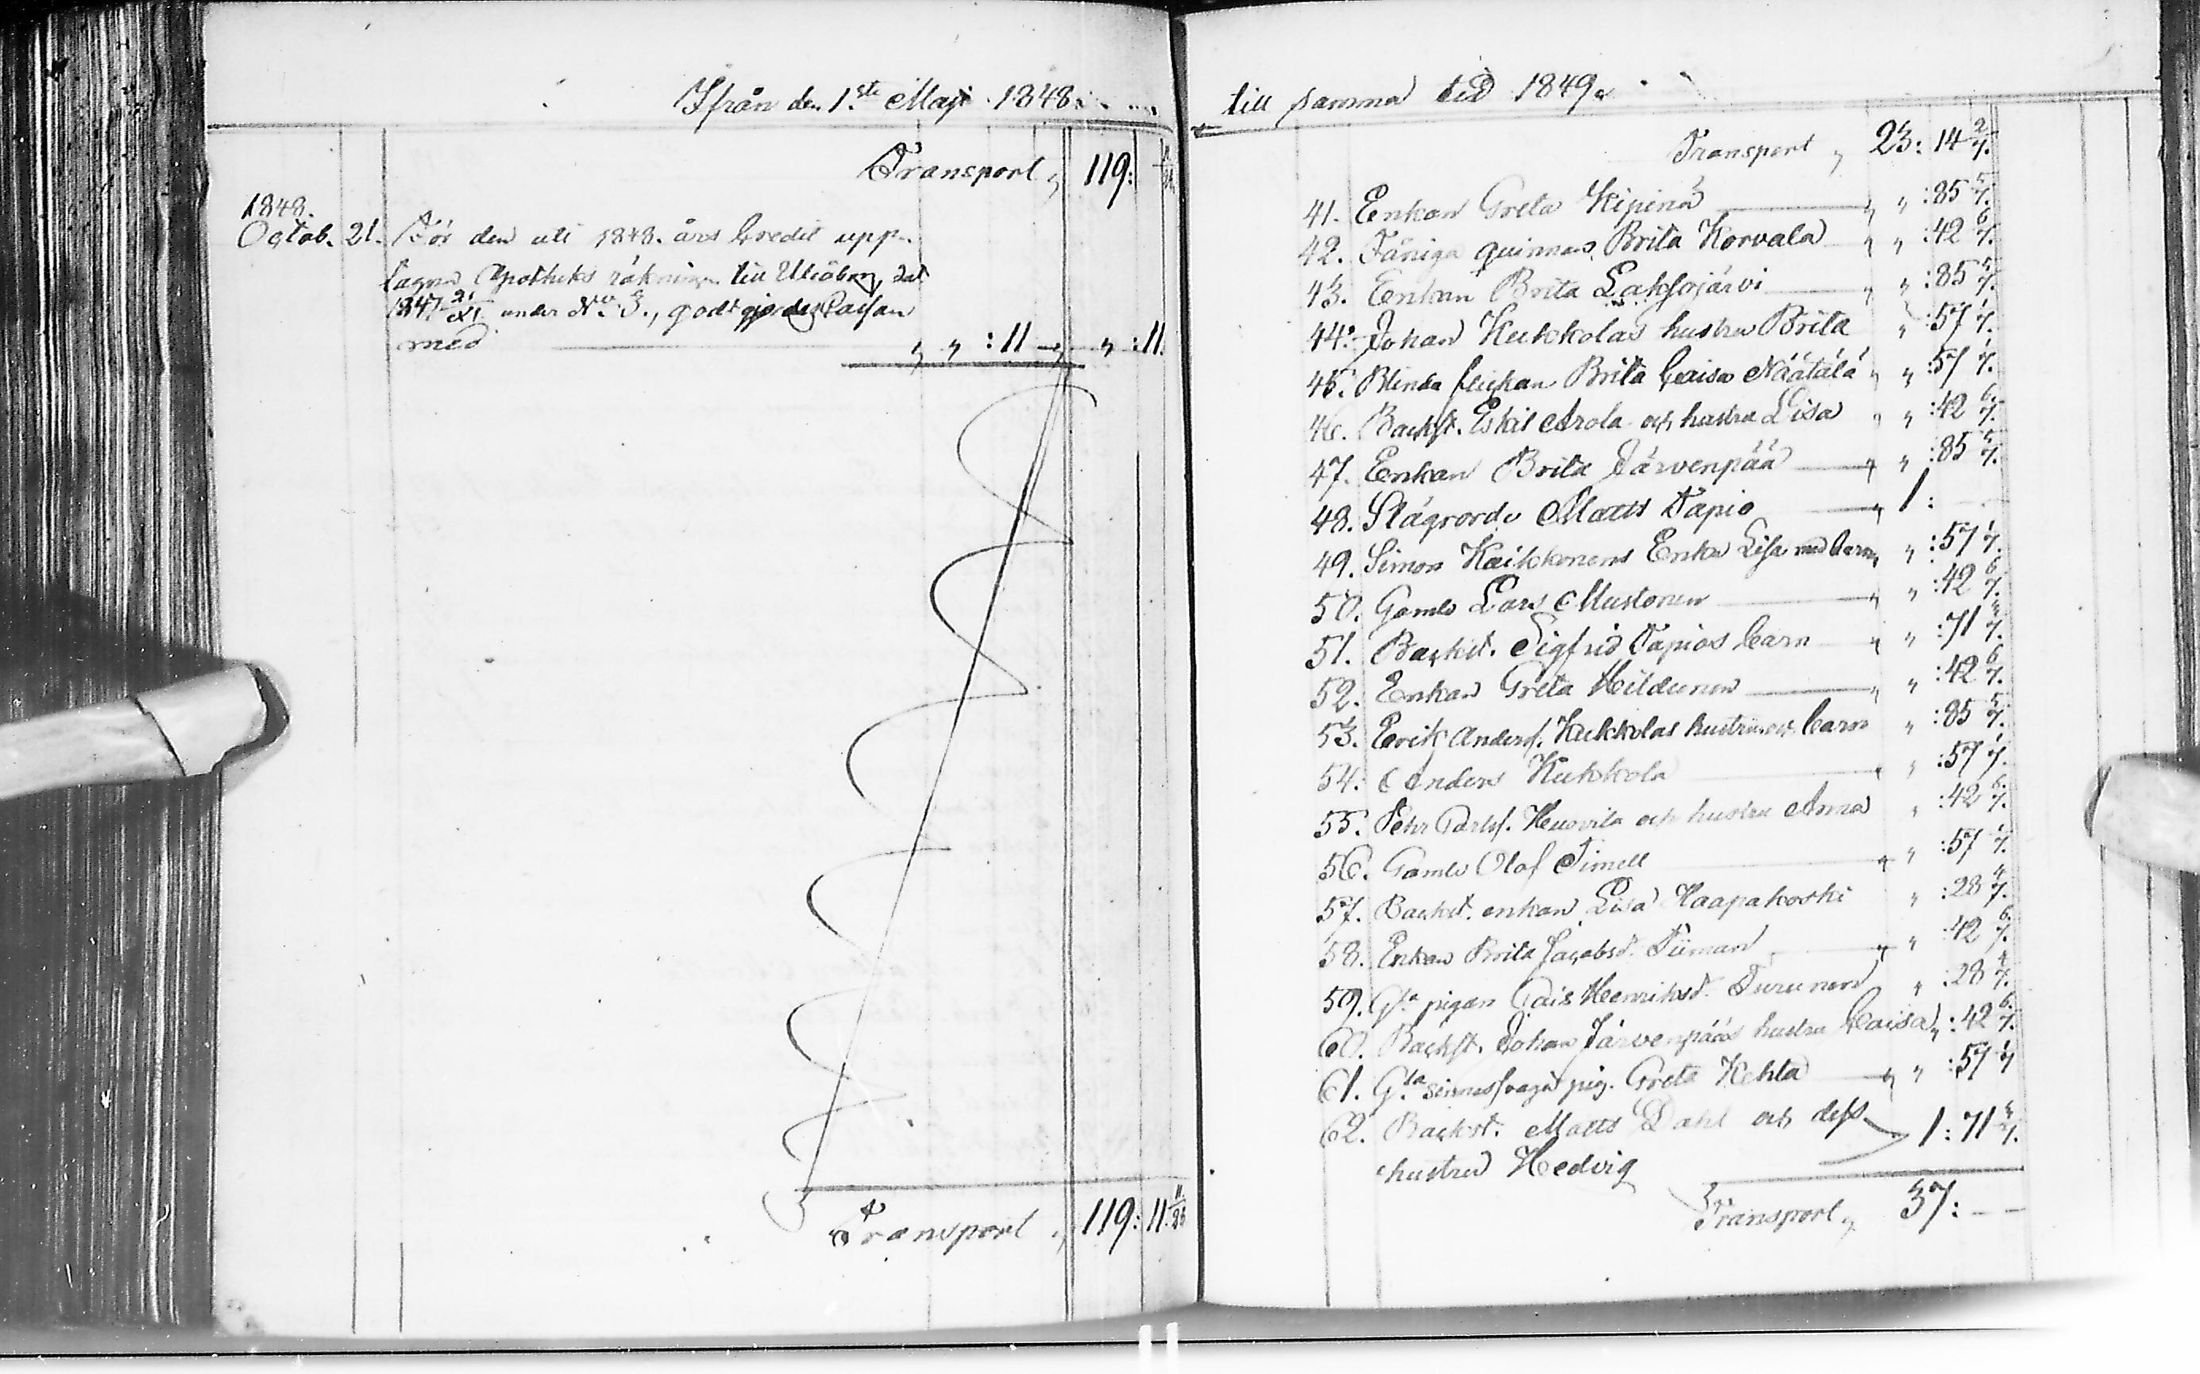 Ifrån den 1ste Maji 1848.
Transport „ 119:
1848.
Octob. 21. För den uti 1848. års Credit upp-
tagna Apotheks räkningen till Uleåborg, dat.
1847 under No 3., godtgjordes Cassan
med „ „ : 11 „ : 11.
Transport „ 119: 11. 11/25
till samma tid 1849.
Transport „ 23: 14 2/7.
41. Enkan Greta Kipinä „ „ : 85 5/7.
42. Fåniga quinnan Brita Korvala „ „ : 42 6/7.
43. Enkan Brita Laksojärvi „ „ : 85 5/7.
44. Johan Kukkolas hustru Brita „ : 57 1/7.
45. Blinda flickan Brita Caisa Näätälä „ „ : 57 1/7.
46. Backst. Eskil Arola och hustru Lisa „ „ : 42 6/7.
47. Enkan Brita Järvenpää „ „ : 85 5/7.
48. Slagrörde Matts Tapio „ 1:
49. Simon Kaikkonens Enka Lisa med barn „ „ : 57 1/7.
50. Gamle Lars Mustonen „ „ : 42 6/7.
51. Backst. Sigfrid Tapios barn „ „ : 71 3/7.
52. Enkan Greta Hildunen „ „ : 42 6/7.
53. Erik Anders. Kukkolas hustru och barn „ : 85 5/7.
54. Anders Kukkola „ „ : 57 1/7.
55. Pehr Huovila och hustru Anna „ : 42 6/7.
56. Gamle Olof Timell „ „ : 57 1/7.
57. Backst. enkan Lisa Haapakoski „ : 28 4/7.
58. Enkan Brita Jacobsd. Tiiman „ „ : 42 6/7.
59. Gla pigan Cais Henriksd. Turunen „ : 28 4/7.
60. Backst. Johan Järvenpääs hustru Caisa „ : 42 6/7.
61. Gla sinnessvaga pig. Greta Kehta „ „ : 57 1/7
62. Backst. Matts Dahl och dess 1: 71 3/7.
hustru Hedvig
Transport „ 37: – –